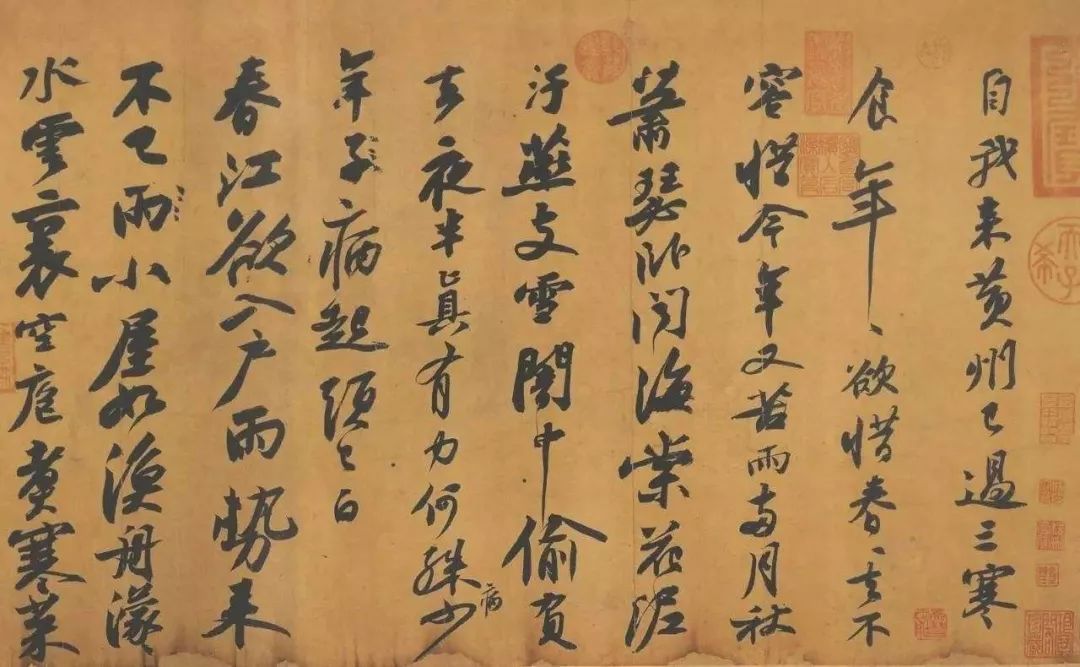 自我来黄州已過三寒
食年、欲惜春、去不
容惜今年又苦雨兩月秋
蕭瑟卧聞海棠花泥
汙燕支雪闇中偷負
去夜半真有力何殊少病
年子病起頭已白
春江欲入户雨勢来
不已雨小屋如漁舟濛
水雲裏空庖煮寒菜